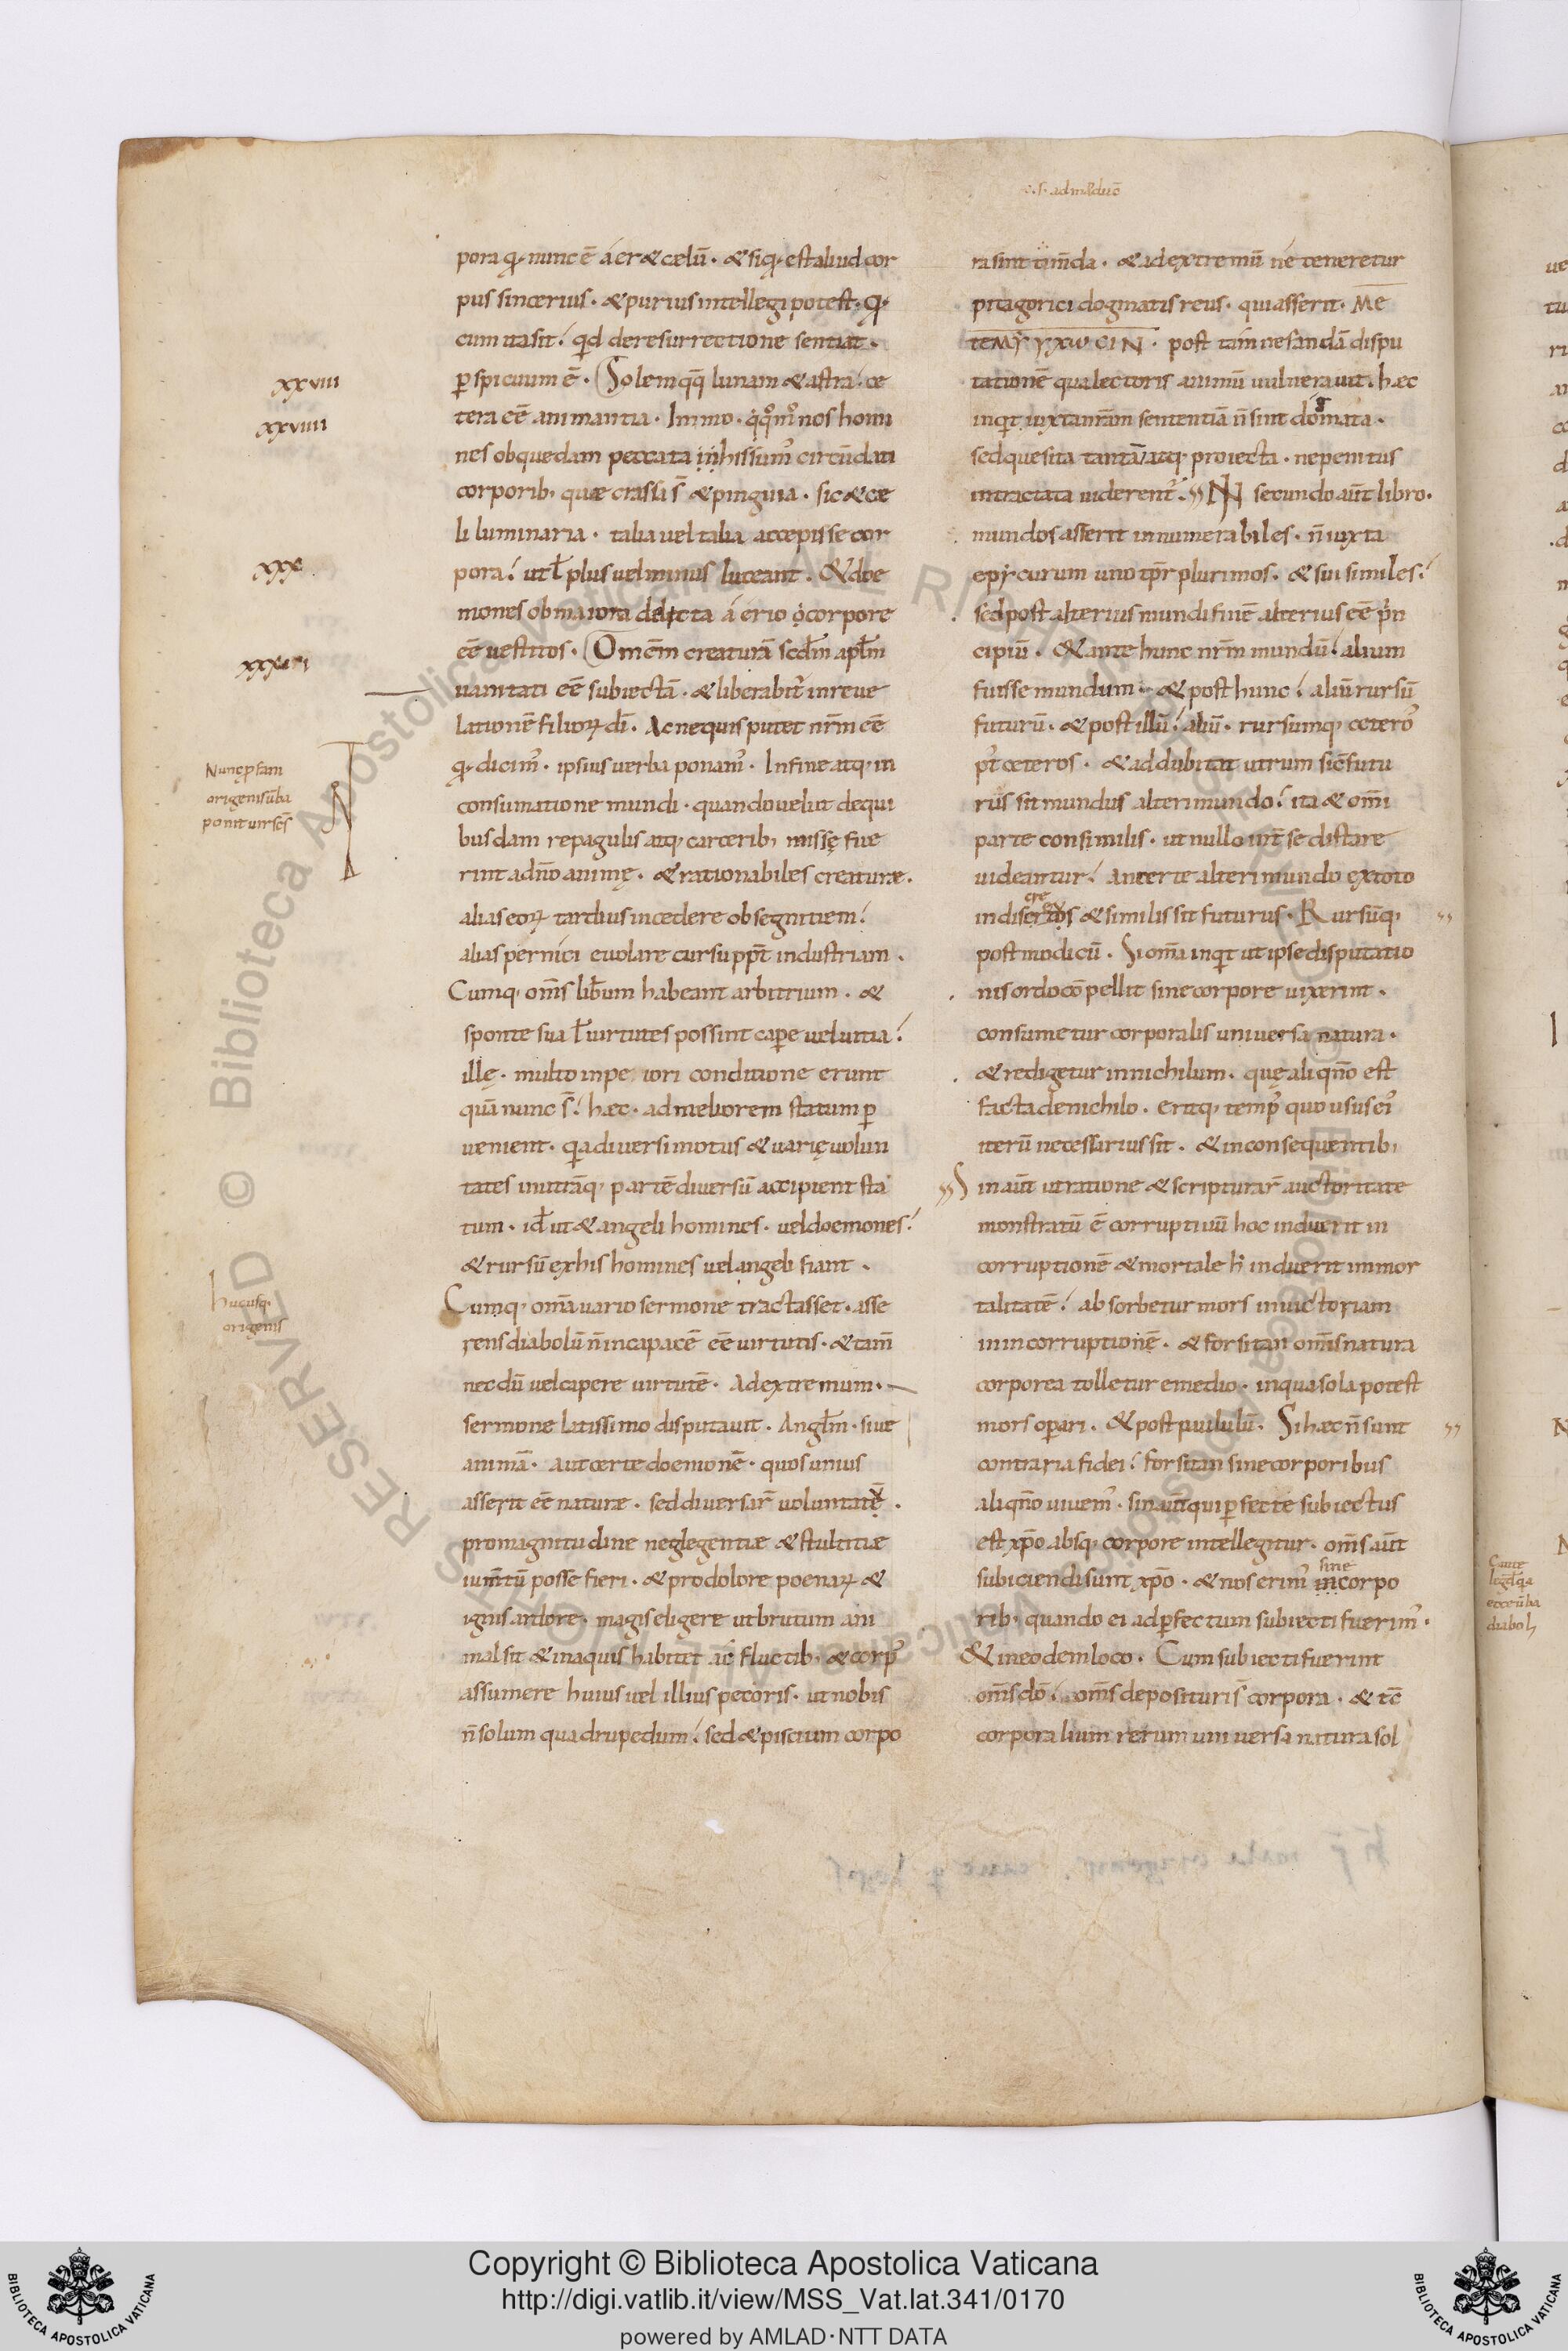 c. s. ad
pora q; nunc ē áer & cælū. & siq; est aliud cor
pus sincerius. & purius intellegi potest. q;
cum ita sit! qd de resurrectione sentiat.
p̱spicuum ē. Solem qq; lunam & astra! ce
tera eē animantia. Immo. nos homi
nes ob quedam peccata inhis sum̄ circūdati
corporib; quæ crassa s̄ & pinguia. sic & ce
li luminaria. talia vel talia accepisse cor
pora! ut ł plus vel minus luceant. & doe
mones ob maiora delicta áerio corpore
eē vestitos. Omēm creaturā scdm apłm
vanitati eē subiectā. & liberabit̄ in reve
lationē filiorꝝ dī. Ac nequis putet nr̄m eē
q; dicim̄. ipsius verba ponam̄. In fine atq; in
consumatione mundi. quando velut de qui
busdam repagulis atq; carcerib; missę fue
rint adn̄o animę. & rationabiles creaturæ.
alias eorꝝ tardius incedere ob segnitiem!
alias pernici evolare cursu ppt̄ industriam.
Cumq; om̄s lib̄um habeant arbitrium. &
sponte sua ł virtutes possint cap̱e vel vitia!
illę. multo in peiori conditione erunt
quā nunc s̄! hæc. ad meliorem statum p̱
venient. qa diversi motus & varię volun
tates in utrāq; partē diversū accipient sta
tum. id ut & angeli homines. vel doemones!
& rursū ex his homines vel angeli fiant.
Cumq; om̄a vario sermone tractasset. asse
rens diabolū n̄ incapacē eē virtutis. & tam̄
necdū velle capere virtutē. Ad extremum.
sermone latissimo disputavit. Angłm. sive
animā. aut certe doemonē. quos unius
asserit eē naturæ. sed diversar̄ voluntatū.
pro magnitudine neglegentiæ & stultitiæ
ium̄tū posse fieri. & pro dolore poenarꝝ &
ignis ardore. magis eligere ut brutum ani
mal sit & in aquis habitet ac fluctib; & corp̄
assumere huius vel illius pecoris. ut nobis
n̄ solum quadrupedum! sed & piscium corpo
ra sint tim̄da. & ad extremū né teneretur
pitagorici dogmatis reus. qui asserit. ΜΕ
ΤΕΜΨΥΧωCΙΝ. post tám nefandā dispu
tationē qua lectoris animū vulneravit. hæc
inqt iuxta nr̄am sententiā n̄ sint dogmata.
sed quesita tantū atq; proiecta. ne penitus
intractata viderent̄. IN secundo aūt libro.
mundos asserit innumerabiles. n̄ iuxta
epycurum uno tp̄r plurimos. & sui similes!
sed post alterius mundi finē alterius eē prin
cipiū. & ante hunc nr̄m mundū! alium
fuisse mundum. & post hunc! aliū rursū
futurū. & post illū! aliū. rursumq; cetero
p̄t ceteros. & addubitat utrum sic̄ futu
rus sit mundus alteri mundo! ita & om̄i
parte consimilis. ut nullo int̄ se distare
videantur! an certe alteri mundo ex toto
indiscretus & similis sit futurus. Rursūq;
post modicū. Si om̄a inqt ut ipse disputatio
nis ordo cōpellit sine corpore vixerint.
consumetur corporalis universa natura.
& redigetur in nichilum. quę aliqn̄o est
facta de nichilo. eritq; temp̄ quo usus ei
iterū necessarius sit. & in consequentib;
Sin aūt ut ratione & scripturar̄ auctoritate
monstratū ē corruptivū hoc induerit in
corruptionē & mortale h̄ induerit immor
talitatē! absorbetur mors in victoriam
in incorruptionē. & forsitan om̄s natura
corporea tolletur e medio. in qua sola potest
mors op̱ari. & post paululū. Si hæc n̄ sunt
contraria fidei! forsitan sine corporibus
aliqn̄o vivem̄. sin aūt qui p̱fecte subiectus
est xp̄o absq; corpore intellegitur. om̄s aūt
subiciendi sunt xp̄o. & nos erim̄ sine corpo
rib; quando ei ad p̱fectum subiecti fuerim̄.
& in eodem loco. Cum subiecti fuerint
om̄s dō! om̄s deposituri s̄ corpora. & tc̄
corporalium rerum universa natura sol
xxviii
xxviiii
xxx
Nunc ipsam
origenis ūba
ponit vir scs̄
Hucusq;
origenis
Copyright © Biblioteca Apostolica Vaticana
http://digi.vatlib.it/view/MSS_Vat.lat.341/0170
powered by AMLAD·NTT DATA
BIBLIOTECA APOSTOLICA VATICANA
BIBLIOTECA APOSTOLICA VATICANA